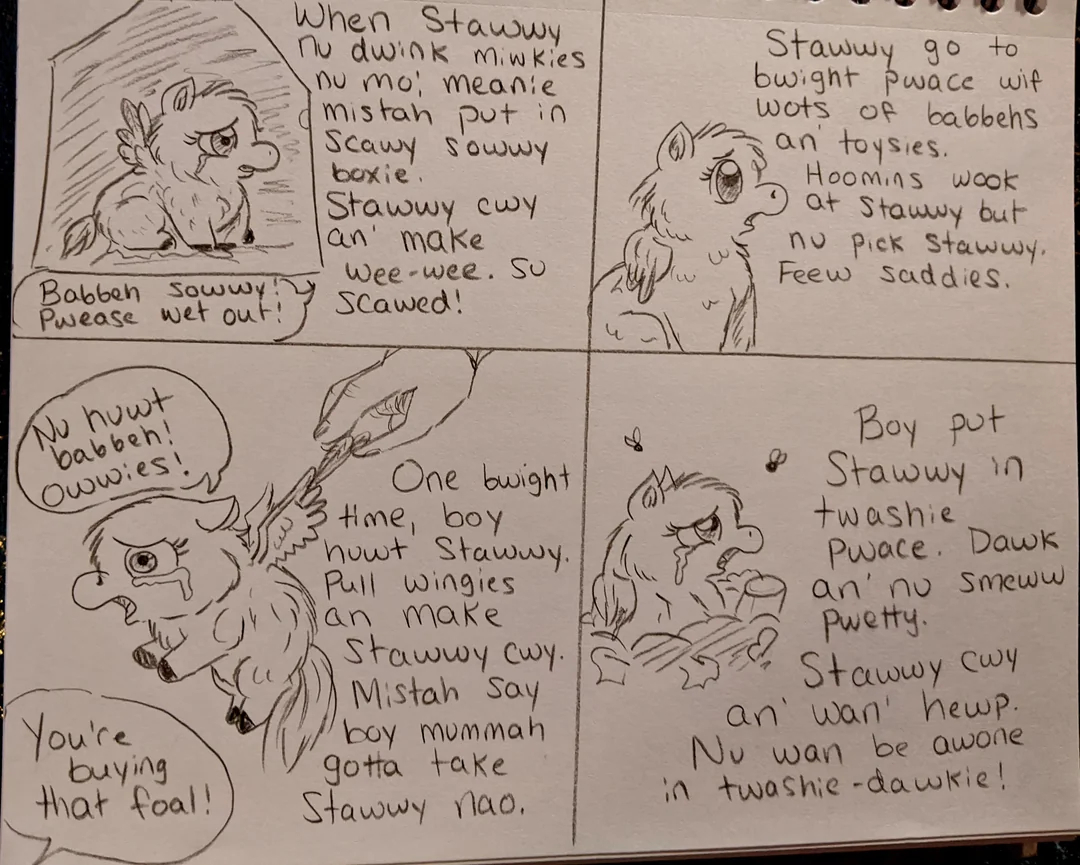 When Stawwy
nu dwink miwkies
nu mo', meanie
mistah put in
scawy sowwy
boxie.
Stawwy cwy
an' make
wee-wee. Su
scawed!
Babbeh sowwy!
Pwease wet out!
Stawwy go to
bwight pwace wif
wots of babbehs
an' toysies.
Hoomins wook
at Stawwy but
nu pick Stawwy.
Feew saddies.
Nu huwt
babbeh!
Owwies!
One bwight
time, boy
huwt Stawwy.
Pull wingies
an make
Stawwy cwy.
Mistah say
boy mummah
gotta take
Stawwy nao.
You're
buying
that foal!
Boy put
Stawwy in
twashie
pwace. Dawk
an' nu smeww
pwetty.
Stawwy cwy
an' wan' hewp.
Nu wan be awone
in twashie-dawkie!